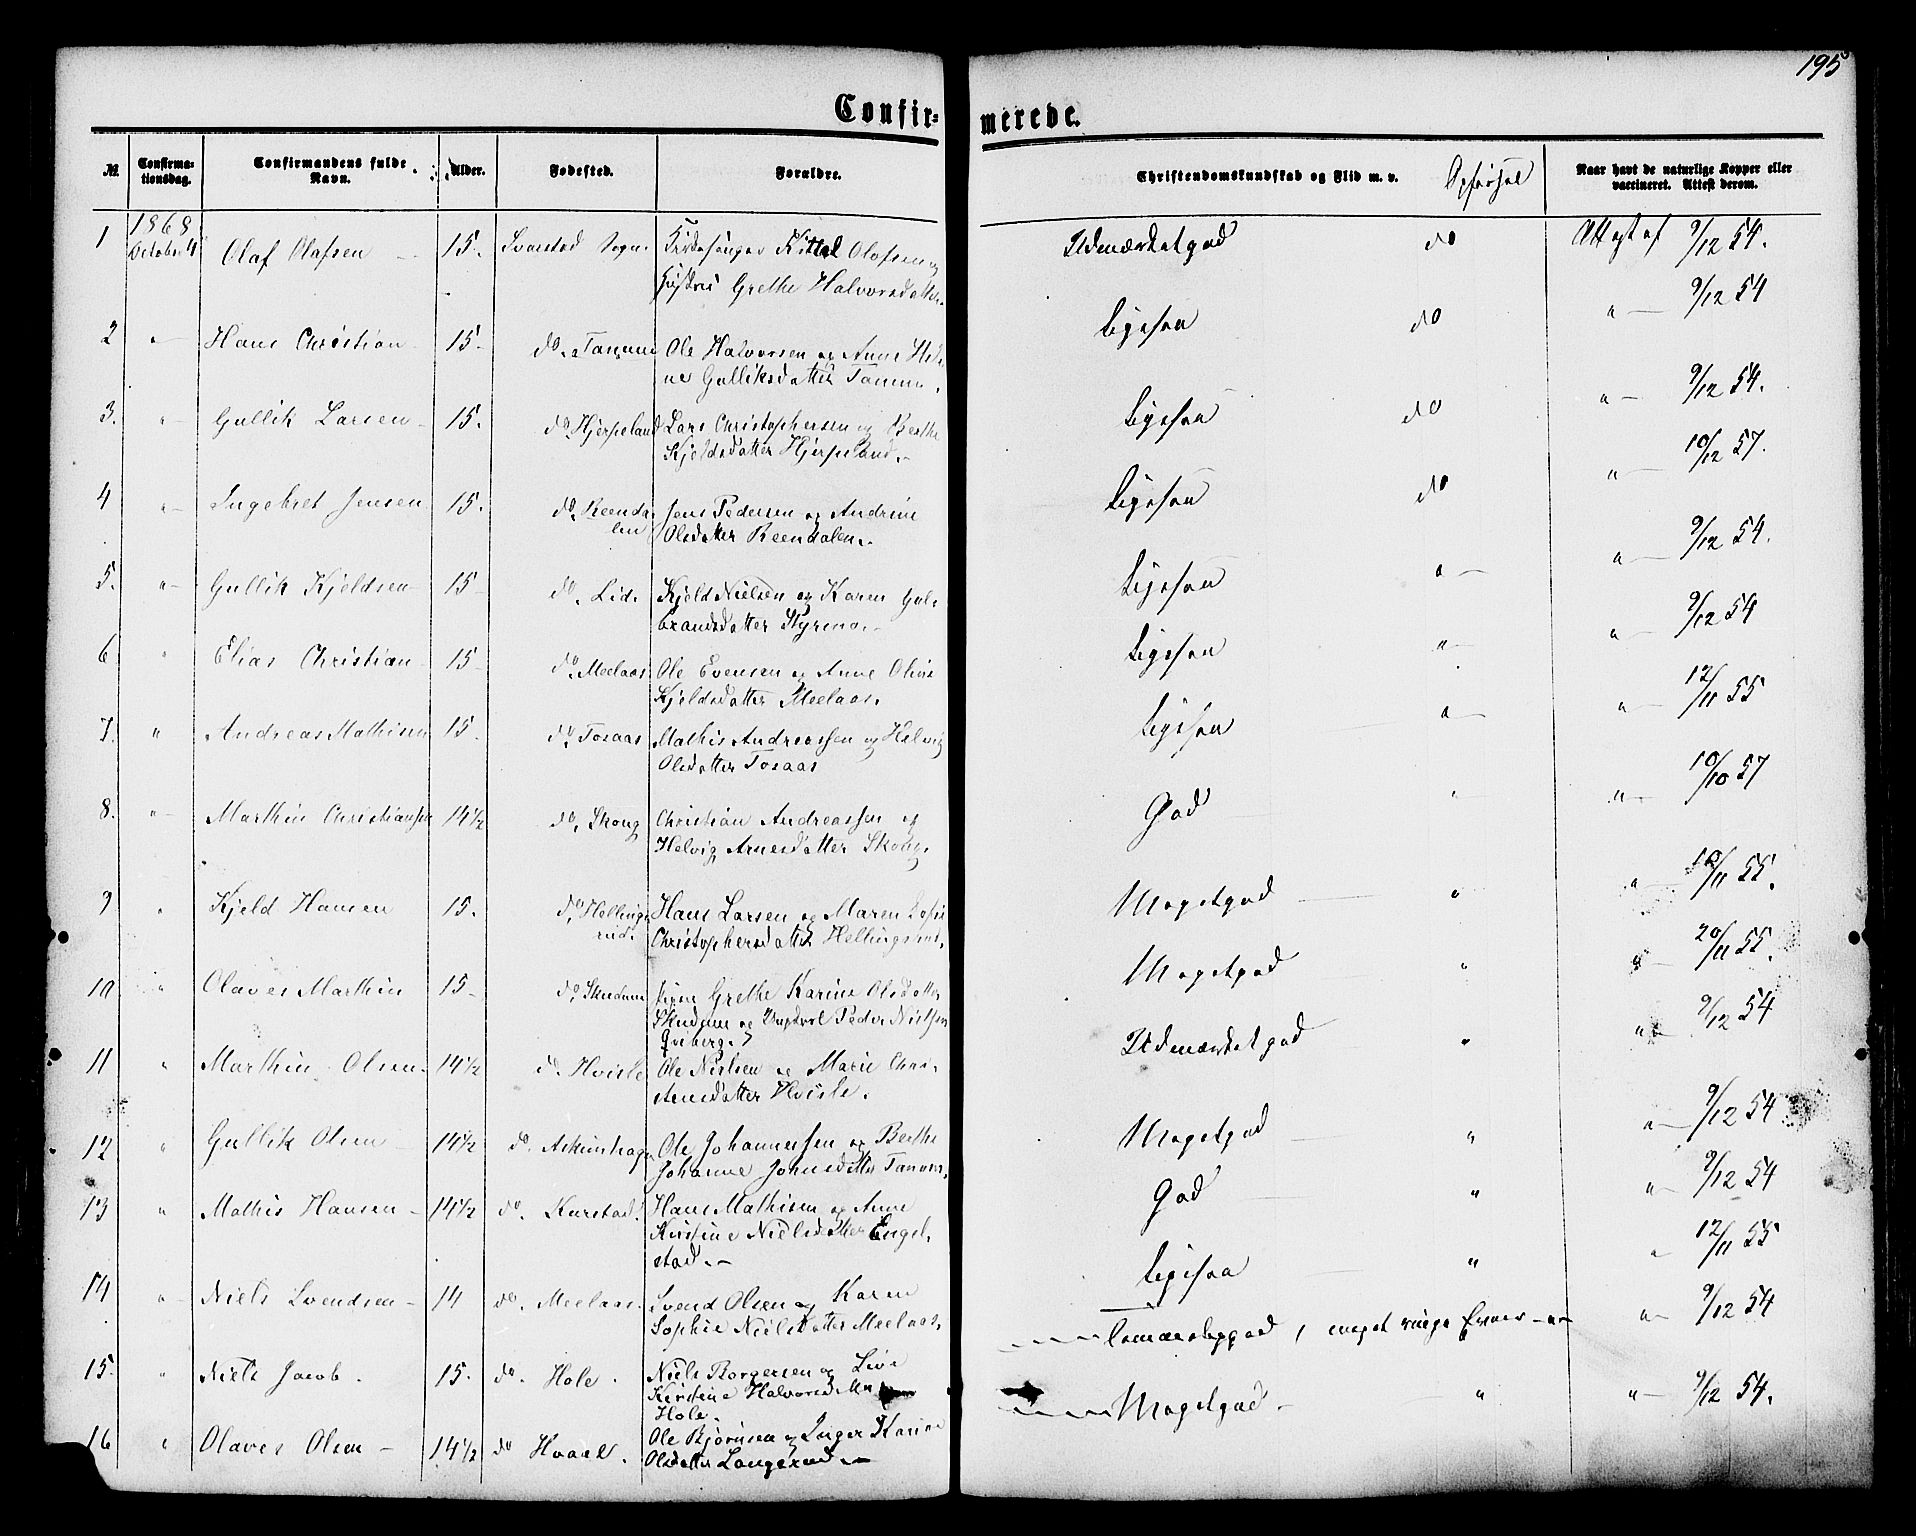 195
Confir-
merede.
№
Confirma-
tionsdag.
Confirmandens fulde
Navn.
Alder.
Fødested.
Forældre.
Christendomskundskab og Flid m. v.
Opførsel
Naar havt de naturlige Kopper eller
vaccineret. Attest derom.
1 1868 October 4 Olaf Olafsen 15. Svarstad Sogn Kirkesanger Kittel Olafsen og
Hustru Grethe Halvorsdatter.
Udmærketgod do Attest af 9/12 54.
2 " Hans Christian 15 do. Tanum Ole Halvorsen og Anne Hele
ne Gulliksdatter Tanum.
Ligesaa do " 9/12 54
3. " Gullik Larsen 15. do. Hjerpeland Lars Christophersen og Berthe
Kjeldsdatter Hjerpeland.
Ligesaa do " 9/12 54.
4 " Ingebret Jensen 15. do. Reenda
len Jens Pedersen og Andrine
Olsdatter Reendalen.
Ligesaa do " 10/12 57.
5. " Gullik Kjeldsen 15 do. Lid. Kjeld Nielsen og Karen Gul-
brandsdatter Styrmo.
Ligesaa " 9/12 54.
6. " Elias Christian 15 do. Meelaas Ole Evensen og Anne Olive
Kjeldsdatter Meelaas.
Ligesaa " " 9/12 54
7. " Andreas Mathisen 15. do. Tosaas Mathis Andreassen og Helvig
Olsdatter Tosaas
Ligesaa " " 12/11 55
8. " Marthin Christiansen 14 1/2 do. Skoug Christian Andreassen og
Helvig Arnesdatter Skoug.
God " " 10/10 57
9 " Kjeld Hansen 15. do. Hellings
rud. Hans Larsen og Maren Sofie
Christophersdatter Hellingsrud.
Megetgod " " /11 55.
10 " Olaves Marthin 15. do. Skudum Pigen Grethe Karine Olsdatter
Skudum og Ungkarl Peder Nielsen
Megetgod " " 20/11 55.
11 " Marthin Olsen 14 1/2 do. Hvisle Ole Nielsen og Marie Chris-
Hvisle.
Udmærketgod " " 9/12 54
12 " Gullik Olsen 14 1/2 do. Ole Johannessen og Berthe
Johanne Johnsdatter Tanum.
Megetgod " " 9/12 54
13 " Mathis Hansen 14 1/2 do. Hans Mathisen og Anne
Kirstine Nielsdatter Engel-
stad.
God " " 9/12 54
14 " Niels Svendsen 14 do. Meelaas. Svend Olsen og Karen
Sophie Nielsdatter Meelaas.
Ligesaa " " 12/11 55
15. " Niels Jacob. 15. do. Hole. Niels Borgersen og Live
Kirstine Halvorsdatter
Hole.
meget ringe Evner " 9/12 54
16 " Olaves Olsen 14 1/2 do Hvaal. Ole Bjørnsen og Inger Karine
Olsdatter Langerud.
Megetgod " " 9/12 54.